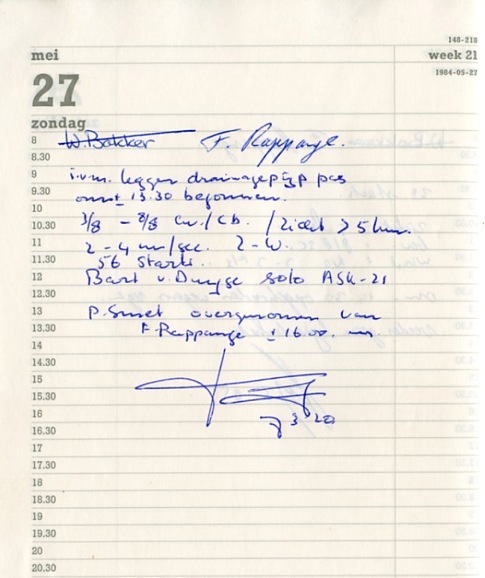 148-218
mei
week 21
27
1984-05-27
zondag
8
W. Bakker F. Rappange.
8.30
9
i.v.m. leggen drainagepijp pas
9.30
omst 13.30 begonnen.
10
10.30
3/8 - 8/8 cu./cb. / zicht > 5 km.
11
2-4 m/sec. Z-W.
11.30
56 starts.
12
Bart v. solo ASK-21
12.30
13
P. Smet overgenomen van
13.30
F. Rappange ± 16.00 uur
14
14.30
15
15.30
16
16.30
17
17.30
18
18.30
19
19.30
20
20.30